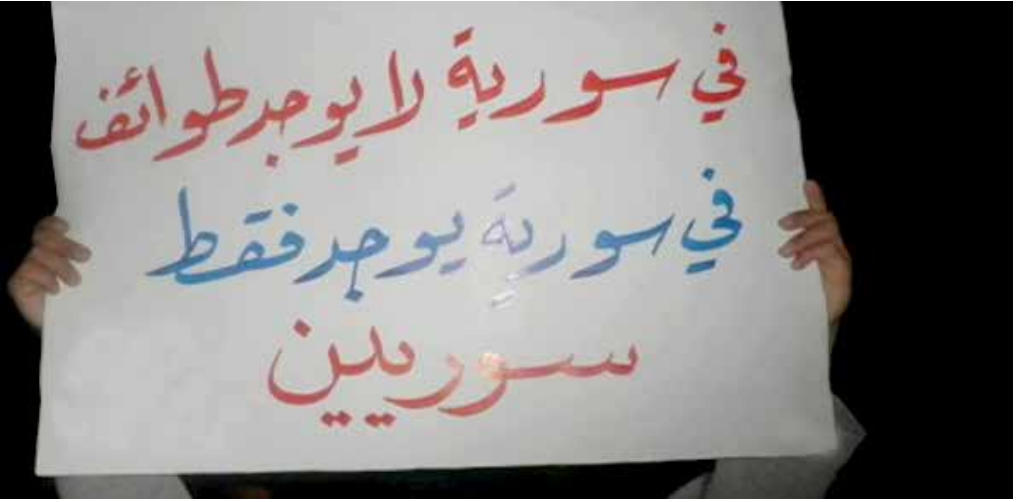 في سورية لا يوجد طوائف
في سورية يوجد فقط
سوريين